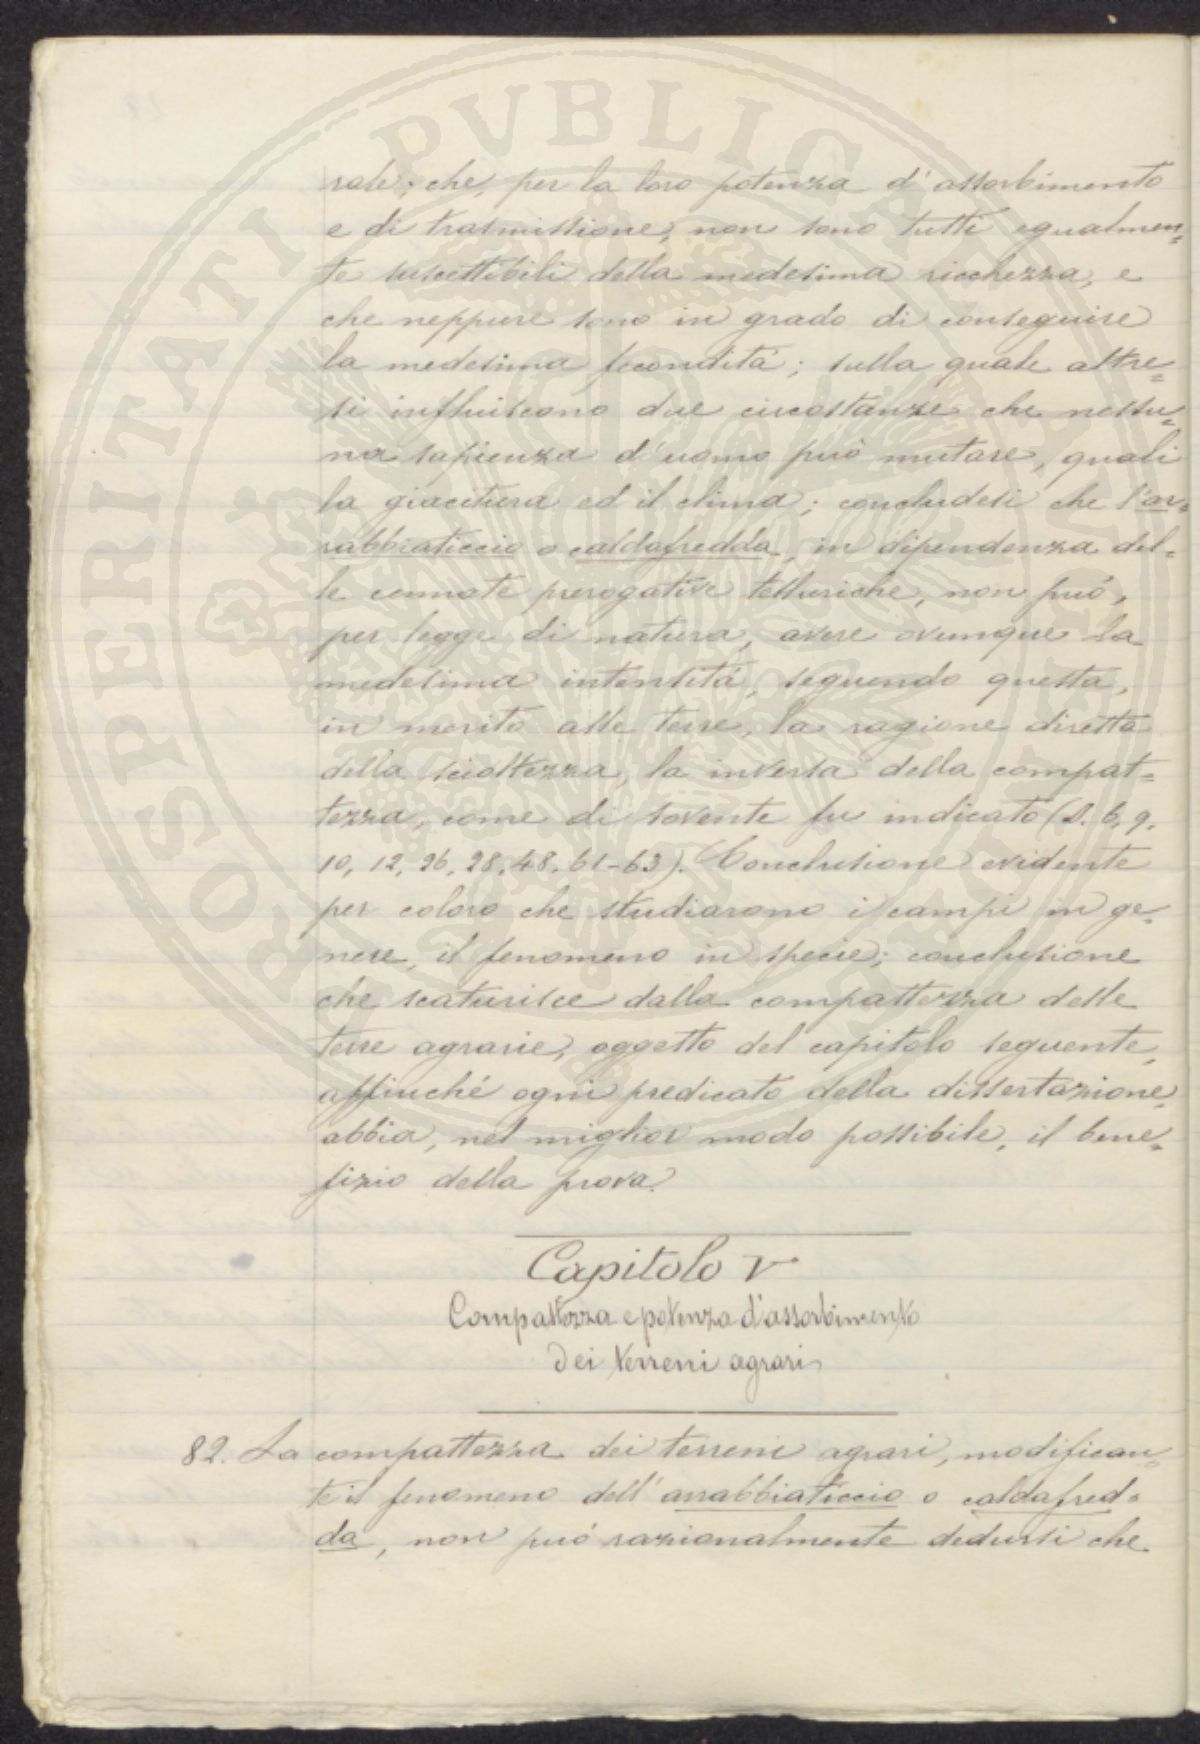 PUBLICAE
PROSPERITATI
rale; che, per la loro potenza d'assorbimento
e di trasmissione, non sono tutti egualmen=
te suscettibili della medesima ricchezza, e
che neppure sono in grado di conseguire
la medesima fecondità; sulla quale altre=
sì influiscono due circostanze che nessu=
na sapienza d'uomo può mutare, quali
la giacitura ed il clima; concludesi che l'ar=
rabbiaticcio o caldafredda, in dipendenza del=
le connate prerogative telluriche, non può,
per legge di natura, avere ovunque la
medesima intensità, seguendo questa,
in merito alle terre, la ragione diretta
della scioltezza, la inversa della compat=
tezza, come di sovente fu indicato (S. 6, 9,
10, 12, 26, 28, 48, 61-63). Conclusione evidente
per coloro che studiarono i campi in ge=
nere, il fenomeno in specie; conclusione
che scaturisce dalla compattezza delle
terre agrarie, oggetto del capitolo seguente,
affinché ogni predicato della dissertazione
abbia, nel miglior modo possibile, il bene=
fizio della prova.
Capitolo V
Compattezza e potenza d'assorbimento
dei terreni agrari
82. La compattezza dei terreni agrari, modifican=
te il fenomeno dell'arrabbiaticcio o caldafred=
da, non può razionalmente dedursi che